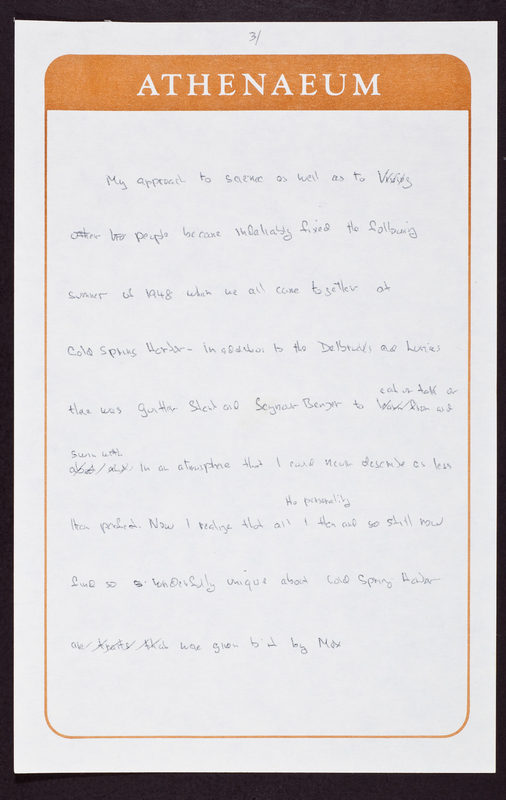 3/
ATHENAEUM
My approach to science as well as to
other people became indelibly fixed the following
summer of 1948 when we all came together at
Cold Spring Harbor - in addition to the Delbrucks and Lurias
eat or talk or
there was Gunther Stent and Seymour Benzer to and
swim with
in an atmosphere that I could never describe as less
the personality
than perfect. Now I realize that all I then and so still now
find so wonderfully unique about Cold Spring Harbor
was given by Max